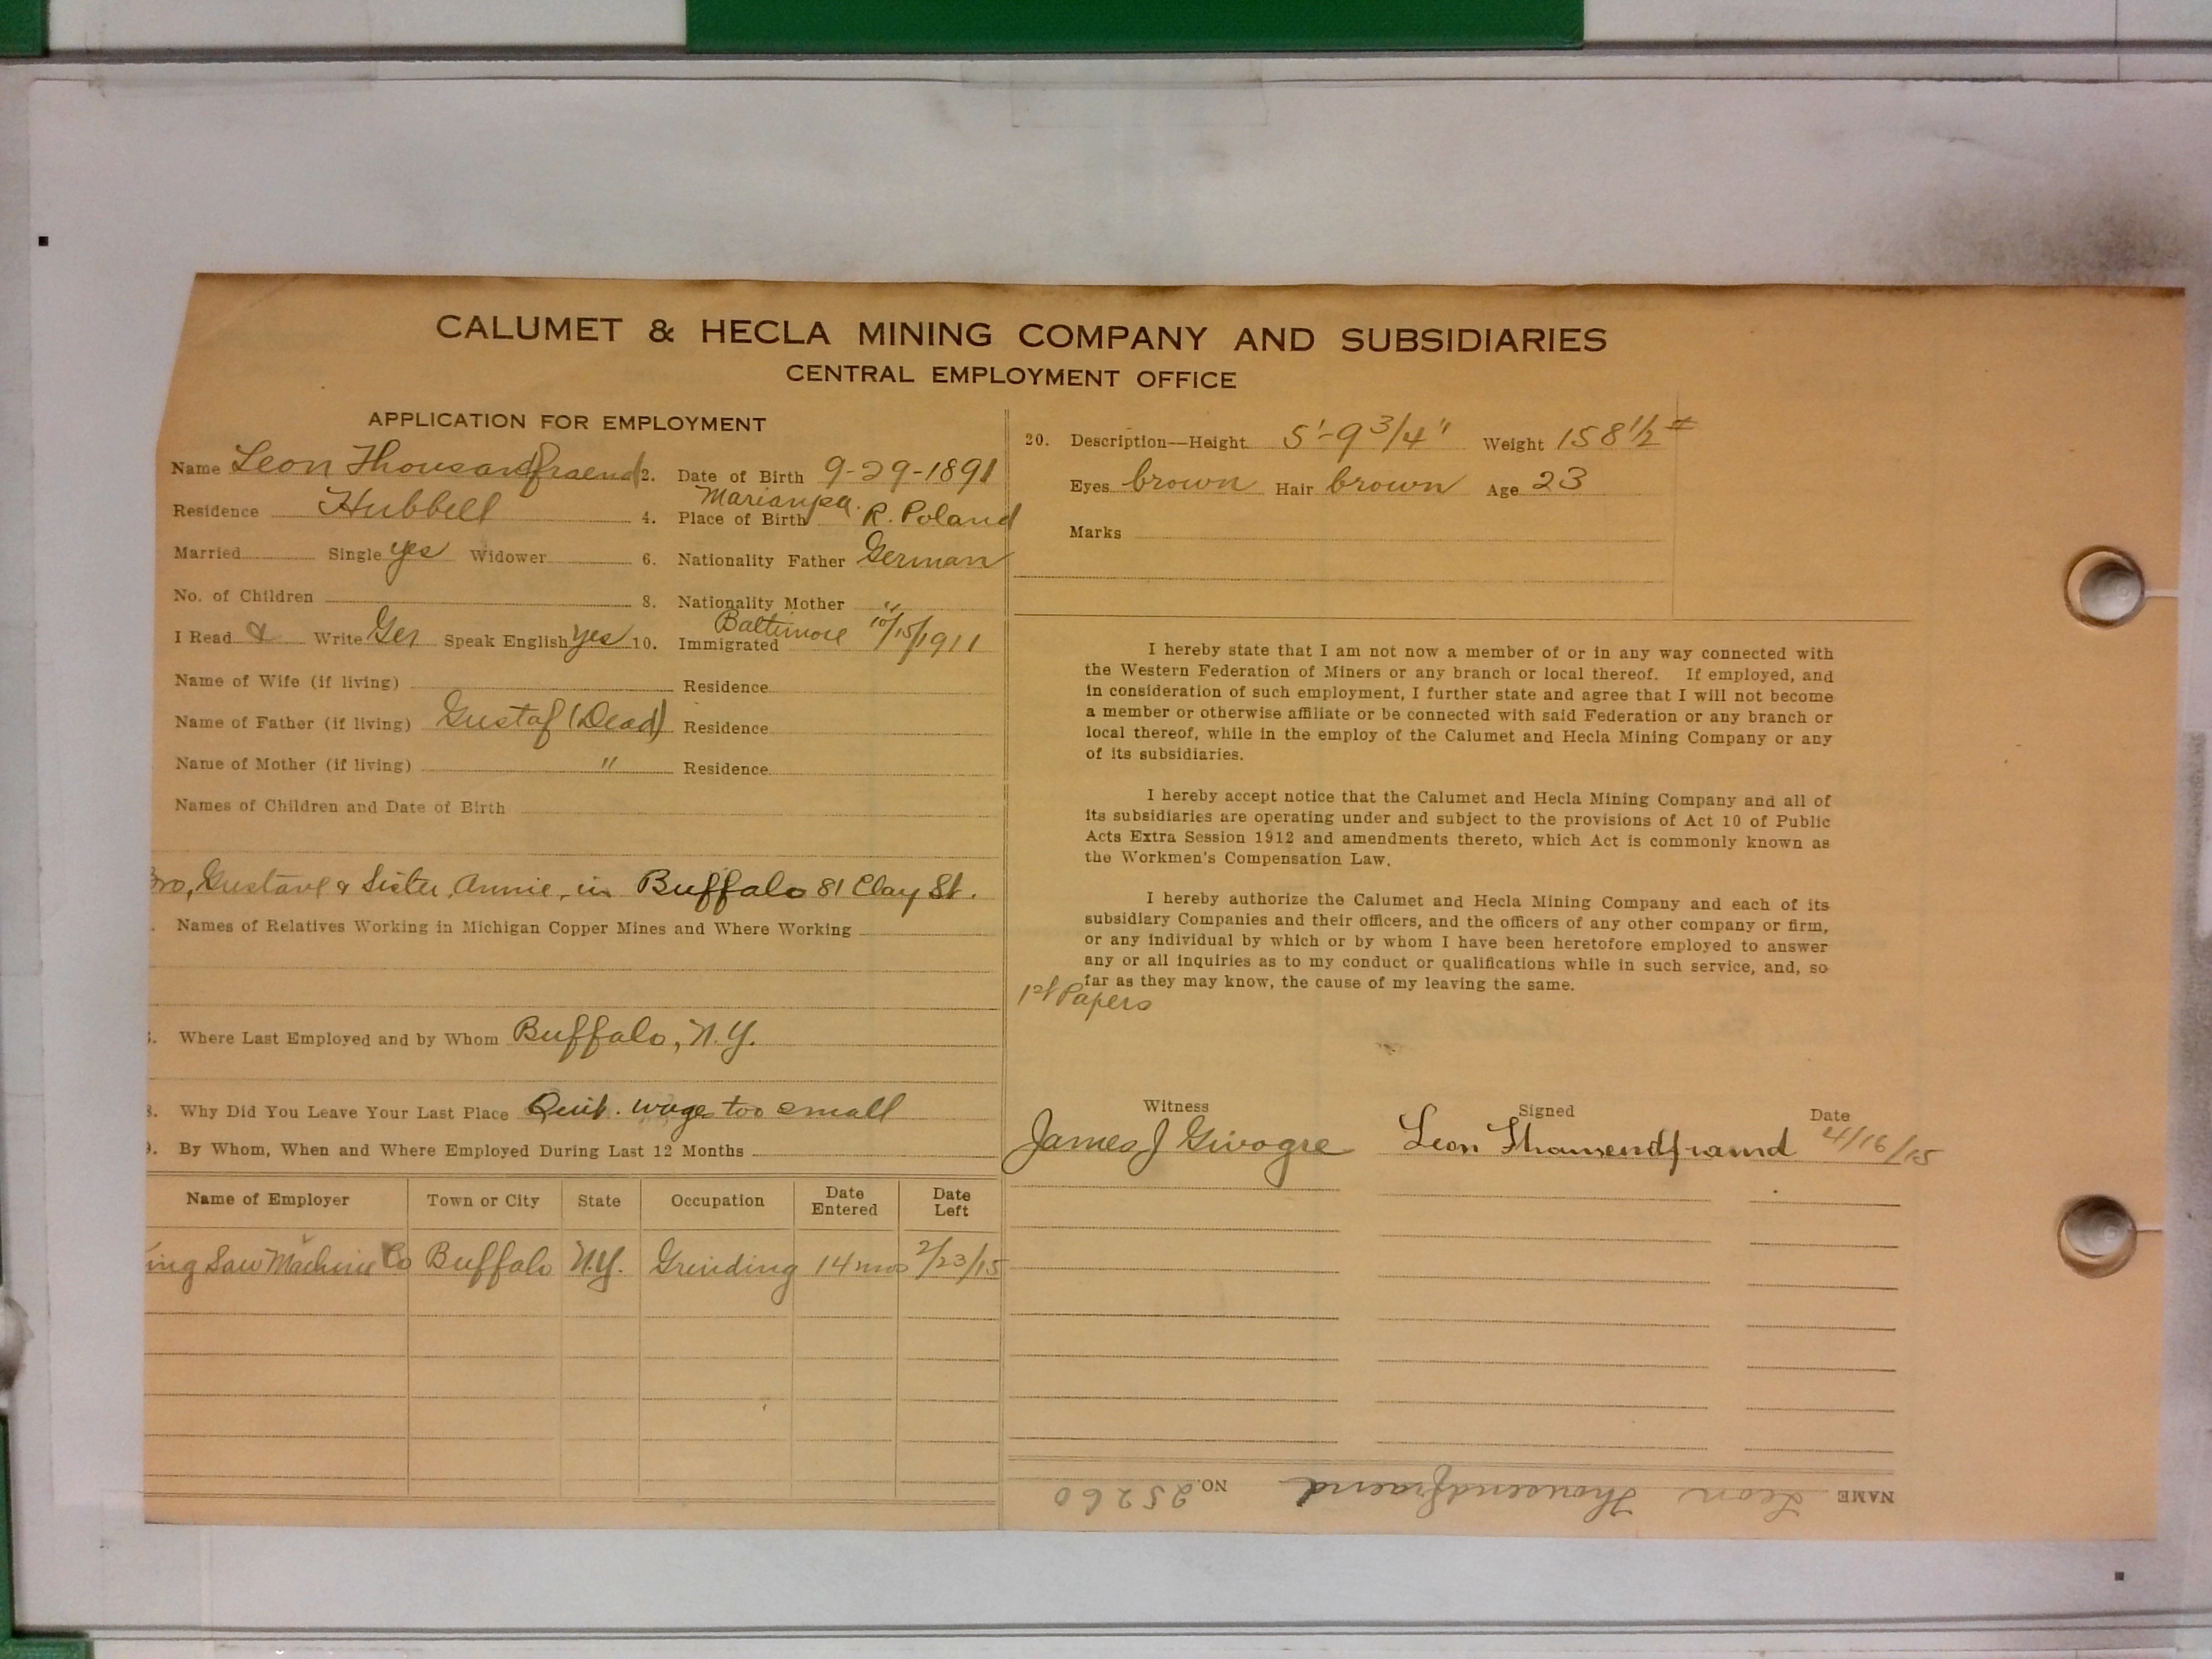 CALUMET & HECLA MINING COMPANY AND SUBSIDIARIES
CENTRAL EMPLOYMENT OFFICE
APPLICATION FOR EMPLOYMENT
Name Leon Thousandfraend 2. Date of Birth 9-29-1891
Residence Hubbell 4. Place of Birth Marianpa. R. Poland
Married Single yes Widower 6. Nationality Father German
No. of Children 8. Nationality Mother "
I Read & Write Ger Speak English yes 10. Immigrated Baltimore 10/15/1911
Name of Wife (if living) Residence
Name of Father (if living) Gustaf (Dead) Residence
Name of Mother (if living) " Residence
Names of Children and Date of Birth
Bro, Gustave & Sister Annie, in Buffalo 81 Clay St.
Names of Relatives Working in Michigan Copper Mines and Where Working
Where Last Employed and by Whom Buffalo, N.Y.
Why Did You Leave Your Last Place Quit. wage too small
By Whom, When and Where Employed During Last 12 Months
Name of Employer Town or City State Occupation Date Entered Date Left
ing Saw Machine Co Buffalo N.Y. Grinding 14 mos 2/23/15
20. Description—Height 5'-9 3/4" Weight 158 1/2 #
Eyes brown Hair brown Age 23
Marks
I hereby state that I am not now a member of or in any way connected with
the Western Federation of Miners or any branch or local thereof. If employed, and
in consideration of such employment, I further state and agree that I will not become
a member or otherwise affiliate or be connected with said Federation or any branch or
local thereof, while in the employ of the Calumet and Hecla Mining Company or any
of its subsidiaries.
I hereby accept notice that the Calumet and Hecla Mining Company and all of
its subsidiaries are operating under and subject to the provisions of Act 10 of Public
Acts Extra Session 1912 and amendments thereto, which Act is commonly known as
the Workmen's Compensation Law.
I hereby authorize the Calumet and Hecla Mining Company and each of its
subsidiary Companies and their officers, and the officers of any other company or firm,
or any individual by which or by whom I have been heretofore employed to answer
any or all inquiries as to my conduct or qualifications while in such service, and, so
far as they may know, the cause of my leaving the same.
1st Papers
Witness Signed Date
James J Givogre Leon Thousendfraund 4/16/15
NAME Leon Thousendfraend NO. 25260